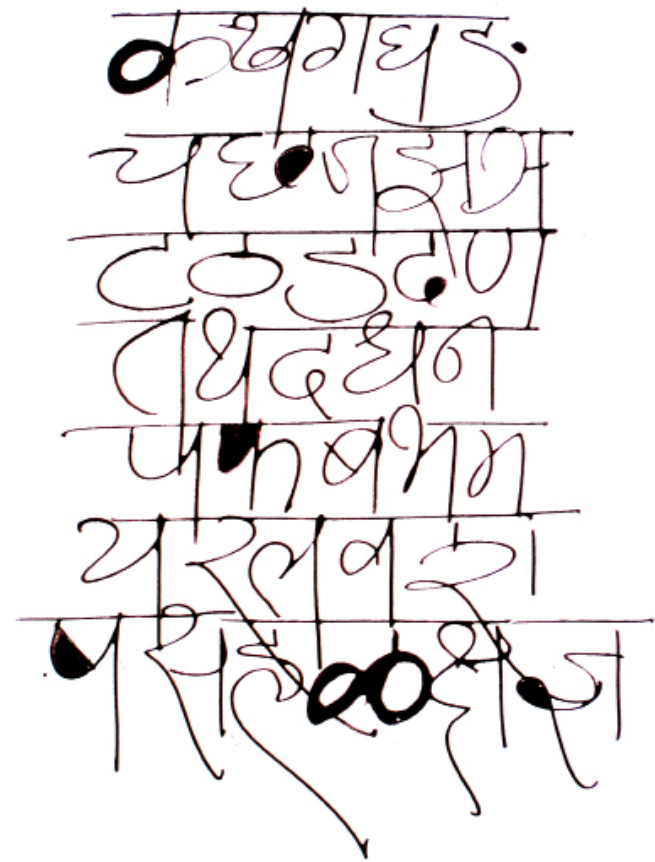 क ख ग घ ङ
च छ ज झ ञ
ट ठ ड ढ ण
त थ द ध न
प फ ब भ म
य र ल व श
ष स ह ळ क्ष ज्ञ